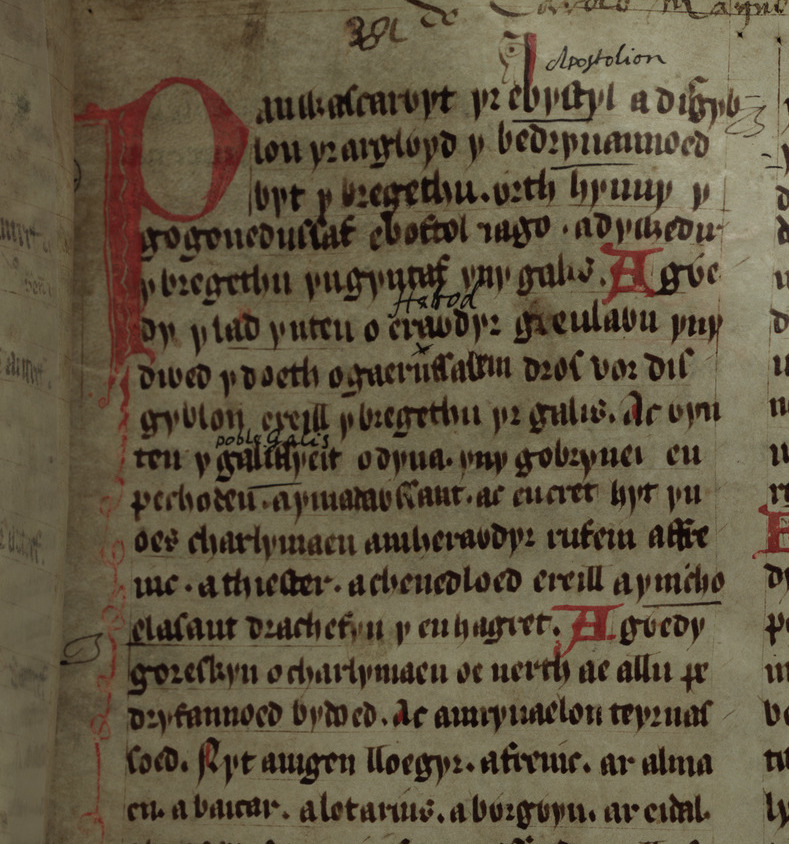 de Carolo Magno
381
Apostolion
Panwascarwyt yr ebystyl a disgyb
lon yr arglwyd y bedrynannoed
byt y bregethu. vrth hynny y
gogonedussaf ebostol iago. adywedir
y bregethu yngyntaf yny galis. A gve
Herod
dy y lad ynteu o erawdyr greulavn yny
diwed y doeth ogaerussalem dros vor dis
gyblon ereill ybregethu yr galis. Ac vyn
poble Galis
teu y galissyeit odyna. yny gobrynei eu
pechodeu. aymadawssant. ac eucret hyt yn
oes charlymaen amherawdyr rufein affre
inc. athiester. achenedloed ereill aymcho
elasant drachefyn y eu hagret. A gvedy
goreskyn ocharlymaen oe nerth ae allu pe
dryfannoed bydoed. Ac amryuaelon teyrnas
soed. Nyt amgen lloegyr. afreinc. ar alma
en. abaiuar. alotarius. aborgvyn. ar eidal.